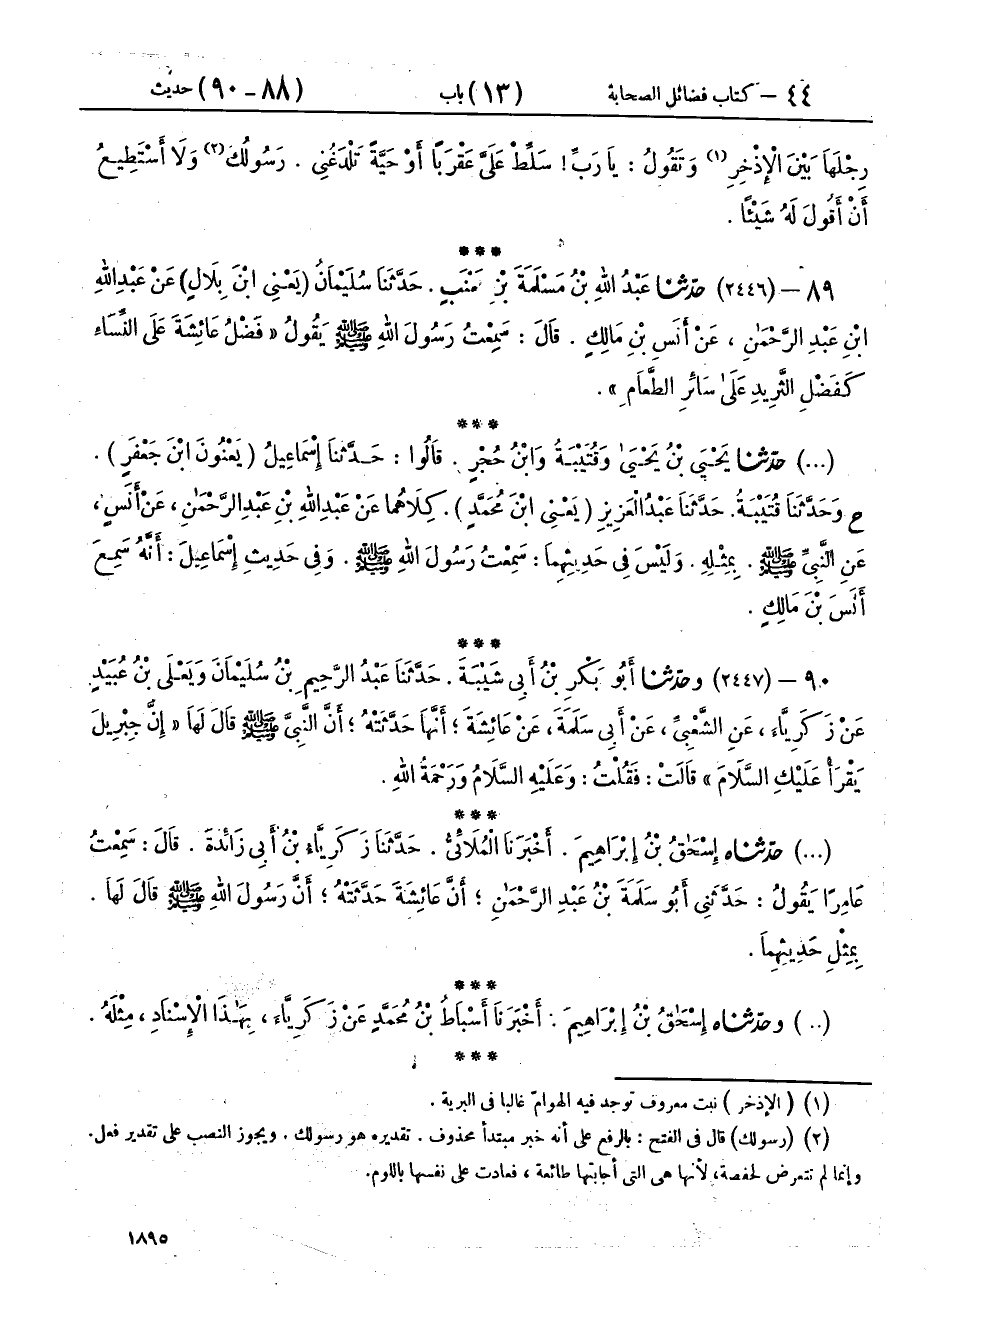 ٤٤ – كتاب فضائل الصحابة (١٣) باب (٨٨ – ٩٠) حديث
رِجْلَهَا بَيْنَ الْإِذْخِرِ (١) وَتَقُولُ : يَا رَبِّ ! سَلِّطْ عَلَيَّ عَقْرَبًا أَوْ حَيَّةً تَلْدَغُنِي . رَسُولُكَ (٢) وَلَا أَسْتَطِيعُ
أَنْ أَقُولَ لَهُ شَيْئًا .
***
٨٩ – (٢٤٤٦) حدّثنا عَبْدُ اللهِ بْنُ مَسْلَمَةَ بْنِ . حَدَّثَنَا سُلَيْمَانُ (يَعْنِي ابْنَ بِلَالٍ) عَنْ عَبْدِ اللهِ
ابْنِ عَبْدِ الرَّحْمٰنِ ، عَنْ أَنَسِ بْنِ مَالِكٍ . قَالَ : سَمِعْتُ رَسُولَ اللهِ ﷺ يَقُولُ « فَضْلُ عَائِشَةَ عَلَى النِّسَاءِ
كَفَضْلِ الثَّرِيدِ عَلَىٰ سَائِرِ الطَّعَامِ » .
***
(...) حدّثنا يَحْيَىٰ بْنُ يَحْيَىٰ وَقُتَيْبَةُ وَابْنُ حُجْرٍ . قَالُوا : حَدَّثَنَا إِسْمَاعِيلُ ( يَعْنُونَ ابْنَ جَعْفَرٍ ) .
ح وَحَدَّثَنَا قُتَيْبَةُ . حَدَّثَنَا عَبْدُ الْعَزِيزِ ( يَعْنِي ابْنَ مُحَمَّدٍ ) . كِلَاهُمَا عَنْ عَبْدِ اللهِ بْنِ عَبْدِ الرَّحْمٰنِ ، عَنْ أَنَسٍ ،
عَنِ النَّبِيِّ ﷺ . بِمِثْلِهِ . وَلَيْسَ فِي حَدِيثِهِمَا : سَمِعْتُ رَسُولَ اللهِ ﷺ . وَفِي حَدِيثِ إِسْمَاعِيلَ : أَنَّهُ سَمِعَ
أَنَسَ بْنَ مَالِكٍ .
***
٩٠ – (٢٤٤٧) وحدّثنا أَبُو بَكْرِ بْنُ أَبِي شَيْبَةَ . حَدَّثَنَا عَبْدُ الرَّحِيمِ بْنُ سُلَيْمَانَ وَيَعْلَى بْنُ عُبَيْدٍ
عَنْ زَكَرِيَّاءَ ، عَنِ الشَّعْبِيِّ ، عَنْ أَبِي سَلَمَةَ ، عَنْ عَائِشَةَ ؛ أَنَّهَا حَدَّثَتْهُ ؛ أَنَّ النَّبِيَّ ﷺ قَالَ لَهَا « إِنَّ جِبْرِيلَ
يَقْرَأُ عَلَيْكِ السَّلَامَ » قَالَتْ : فَقُلْتُ : وَعَلَيْهِ السَّلَامُ وَرَحْمَةُ اللهِ .
***
(...) حدّثناه إِسْحَٰقُ بْنُ إِبْرَاهِيمَ . أَخْبَرَنَا الْمُلَائِيُّ . حَدَّثَنَا زَكَرِيَّاءُ بْنُ أَبِي زَائِدَةَ . قَالَ : سَمِعْتُ
عَامِرًا يَقُولُ : حَدَّثَنِي أَبُو سَلَمَةَ بْنُ عَبْدِ الرَّحْمٰنِ ؛ أَنَّ عَائِشَةَ حَدَّثَتْهُ ؛ أَنَّ رَسُولَ اللهِ ﷺ قَالَ لَهَا .
بِمِثْلِ حَدِيثِهِمَا .
***
(..) وحدّثناه إِسْحَٰقُ بْنُ إِبْرَاهِيمَ . أَخْبَرَنَا أَسْبَاطُ بْنُ مُحَمَّدٍ عَنْ زَكَرِيَّاءَ ، بِهَٰذَا الْإِسْنَادِ ، مِثْلَهُ .
***
(١) ( الإذخر ) نبت معروف توجد فيه الهوامّ غالبا فى البرية .
(٢) (رسولك) قال فى الفتح : بالرفع على أنه خبر مبتدأ محذوف . تقديره هو رسولك . ويجوز النصب على تقدير فعل.
وإنما لم تتعرض لحفصة، لأنها هى التى أجابتها طائعة ، فعادت على نفسها باللوم.
١٨٩٥